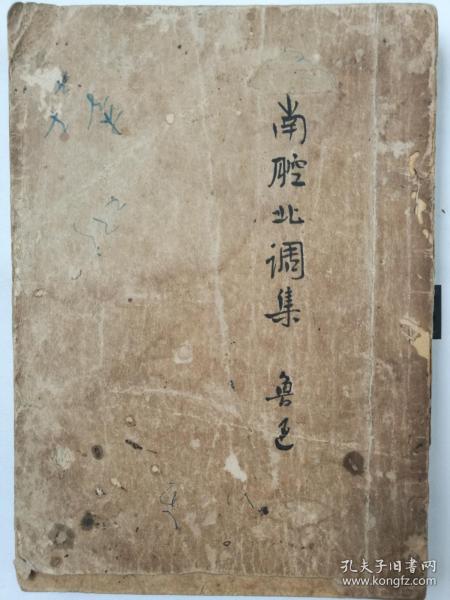 南腔北调集 鲁迅
孔夫子旧书网
www.kongfz.com